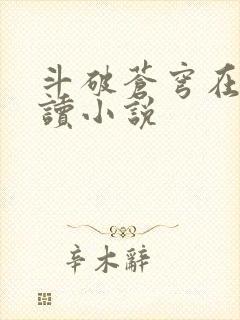 斗破蒼穹在
讀小說
辛木辭